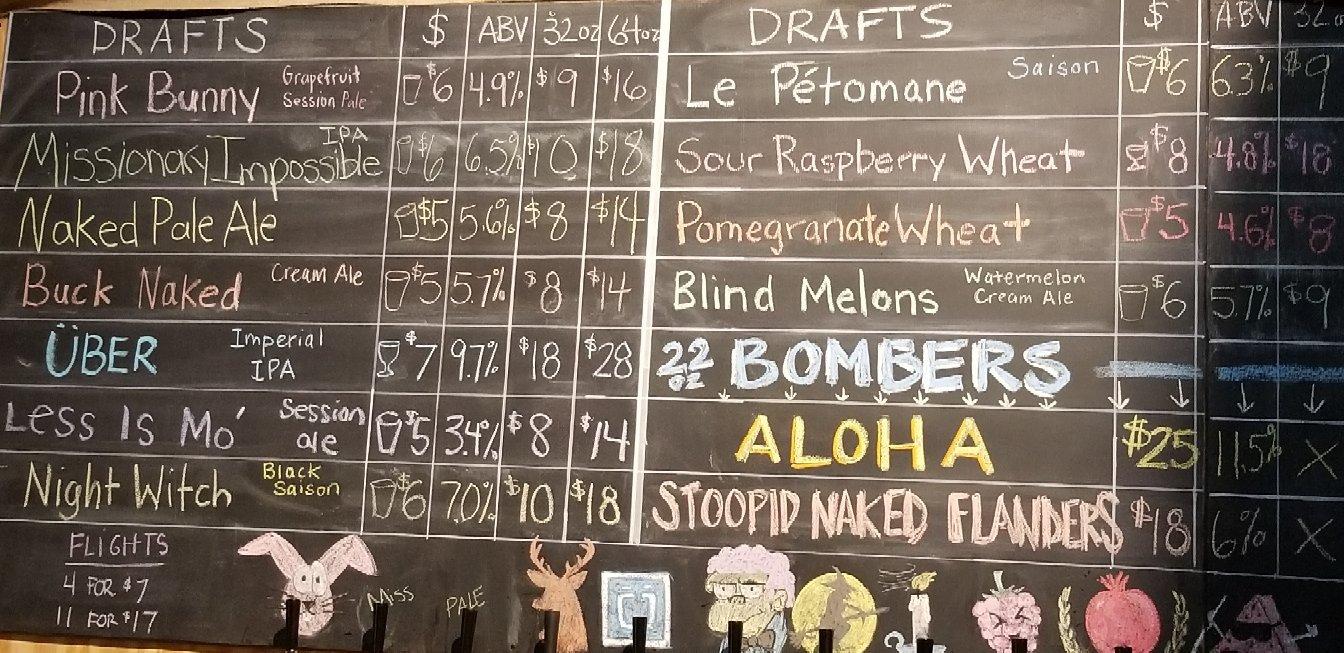 DRAFTS $ ABV 32oz 64oz
Pink Bunny Grapefruit Session Pale $6 4.9% $9 $16
Missionary Impossible IPA $6 6.5% $10 $18
Naked Pale Ale $5 5.6% $8 $14
Buck Naked Cream Ale $5 5.7% $8 $14
ÜBER Imperial IPA $7 9.7% $18 $28
Less Is Mo' Session ale $5 3.4% $8 $14
Night Witch Black Saison $6 7.0% $10 $18
FLIGHTS
4 FOR $7
11 FOR $17
MISS
PALE
DRAFTS $ ABV 32oz
Le Pétomane Saison $6 6.3% $9
Sour Raspberry Wheat $8 4.8% $18
Pomegranate Wheat $5 4.6% $8
Blind Melons Watermelon Cream Ale $6 5.7% $9
22 oz BOMBERS
ALOHA $25 11.5% X
STOOPID NAKED FLANDERS $18 6% X